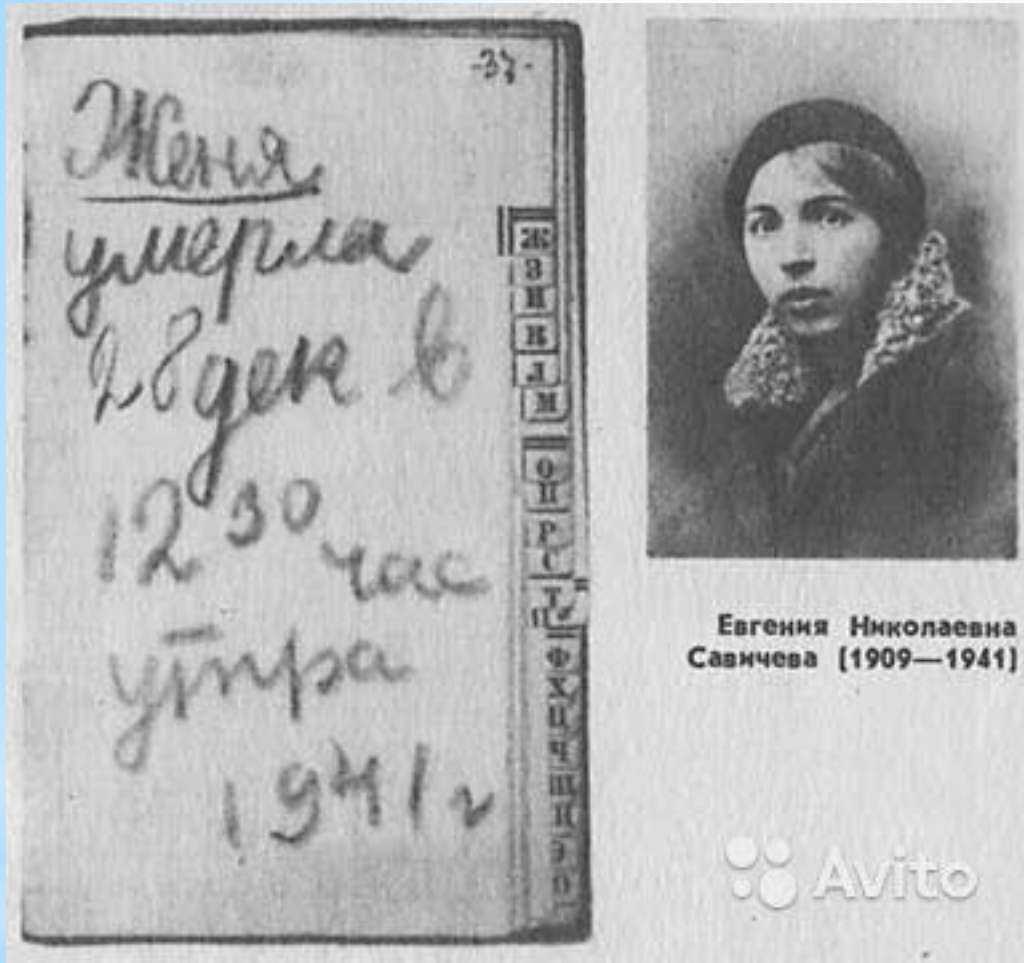 -37-
Женя
умерла
28 дек в
12 30 час
утра
1941 г
Ж
З
И
К
Л
М
О
П
Р
С
Т
У
Ф
Х
Ц
Ч
Ш
Щ
Евгения Николаевна
Савичева (1909—1941)
Avito